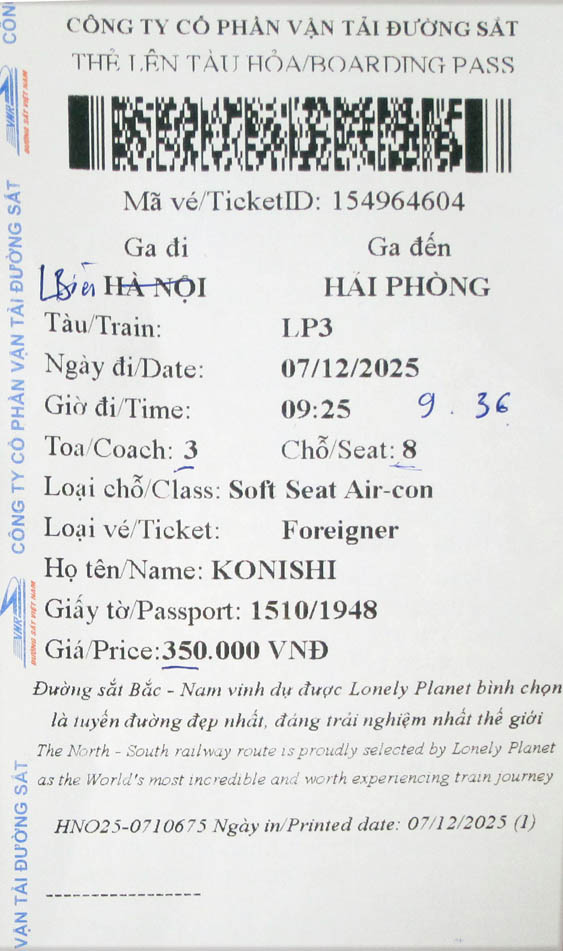 CÔNG TY CỔ PHẦN VẬN TẢI ĐƯỜNG SẮT
THẺ LÊN TÀU HỎA/BOARDING PASS
Mã vé/TicketID: 154964604
Ga đi Ga đến
LBiên HÀ NỘI HẢI PHÒNG
Tàu/Train: LP3
Ngày đi/Date: 07/12/2025
Giờ đi/Time: 09:25 9 . 36
Toa/Coach: 3 Chỗ/Seat: 8
Loại chỗ/Class: Soft Seat Air-con
Loại vé/Ticket: Foreigner
Họ tên/Name: KONISHI
Giấy tờ/Passport: 1510/1948
Giá/Price:350.000 VNĐ
Đường sắt Bắc - Nam vinh dự được Lonely Planet bình chọn
là tuyến đường đẹp nhất, đáng trải nghiệm nhất thế giới
The North - South railway route is proudly selected by Lonely Planet
as the World's most incredible and worth experiencing train journey
HNO25-0710675 Ngày in/Printed date: 07/12/2025 (1)
CÔN
VNR ĐƯỜNG SẮT VIỆT NAM
CÔNG TY CỔ PHẦN VẬN TẢI ĐƯỜNG SẮT
VNR ĐƯỜNG SẮT VIỆT NAM
VẬN TẢI ĐƯỜNG SẮT